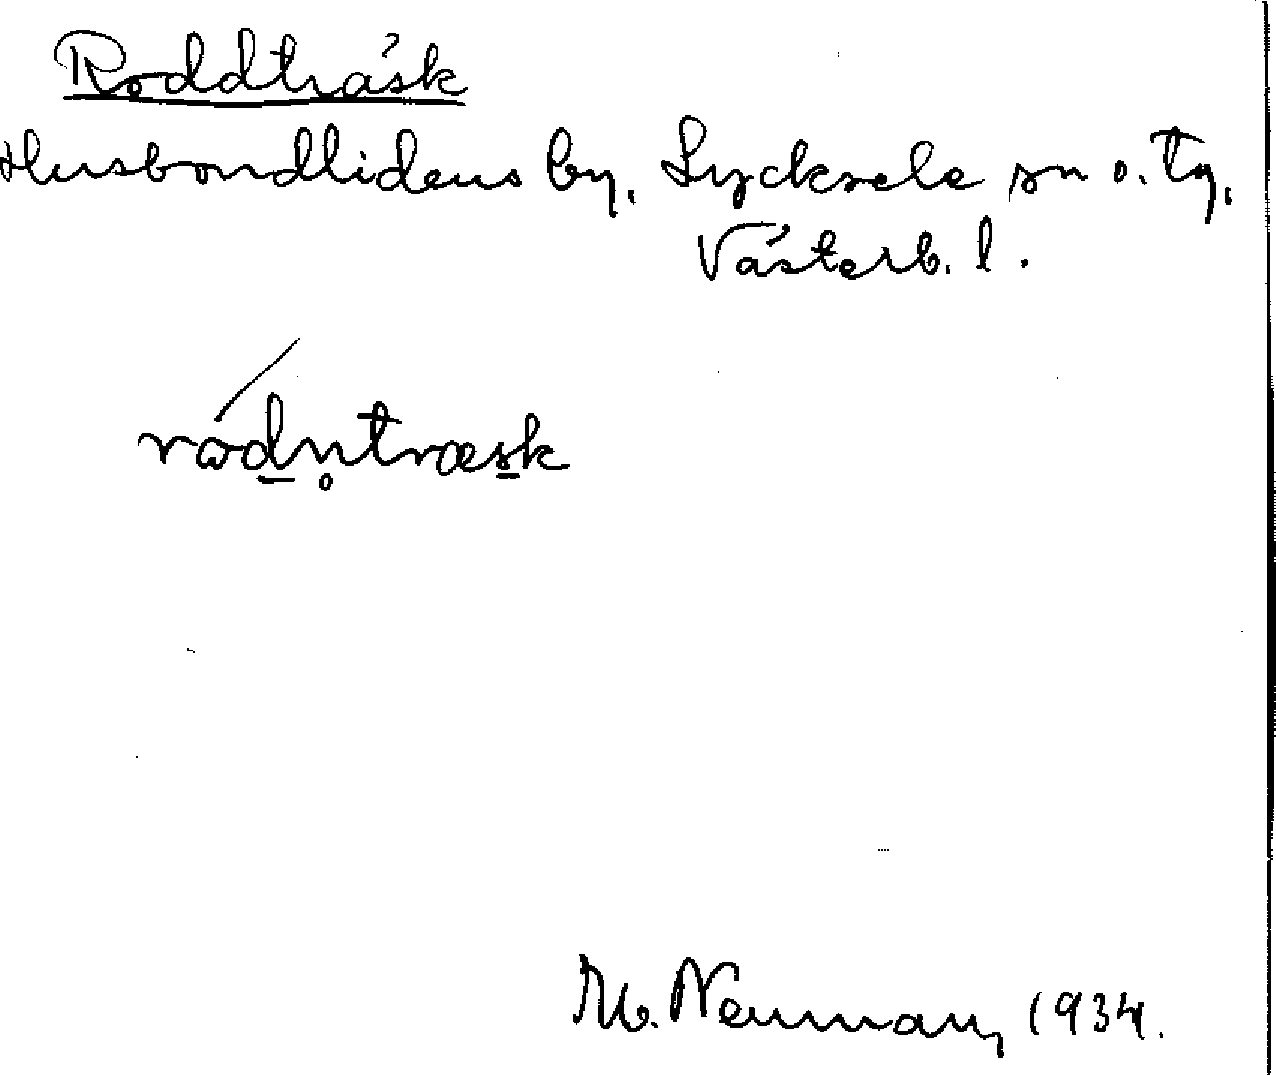 Roddträsk
Husbondlidens by, Lycksele sn o. tg,
Västerb. l.
rωd̲n̥træs̲k
M. Neuman, 1934.